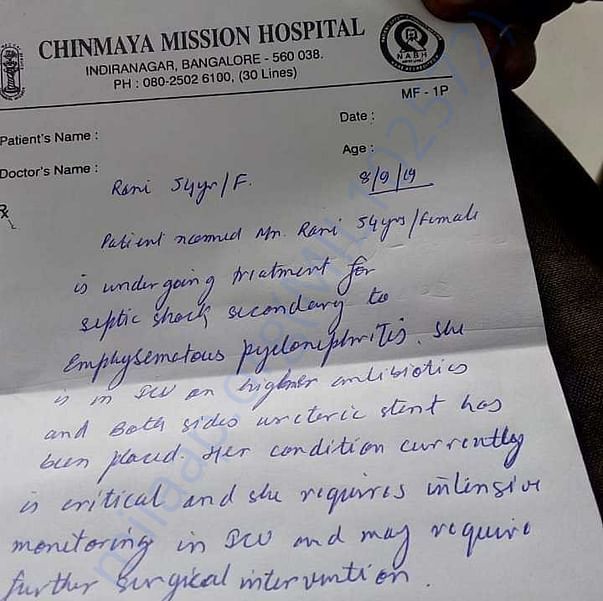 CHINMAYA MISSION HOSPITAL
INDIRANAGAR, BANGALORE - 560 038.
PH : 080-2502 6100, (30 Lines)
NABH
MF - 1P
Patient's Name :
Date :
Doctor's Name :
Age :
Rani 54yr/F.
8/9/19
Rx
Patient named Mr. Rani 54yrs/Female
is undergoing treatment for
septic shock secondary to
Emphysematous pyelonephritis. she
is in ICU on higher antibiotics
and Both sides ureteric stent has
been placed. Her condition currently
is critical and she requires intensive
monitoring in ICU and may require
further surgical intervention.